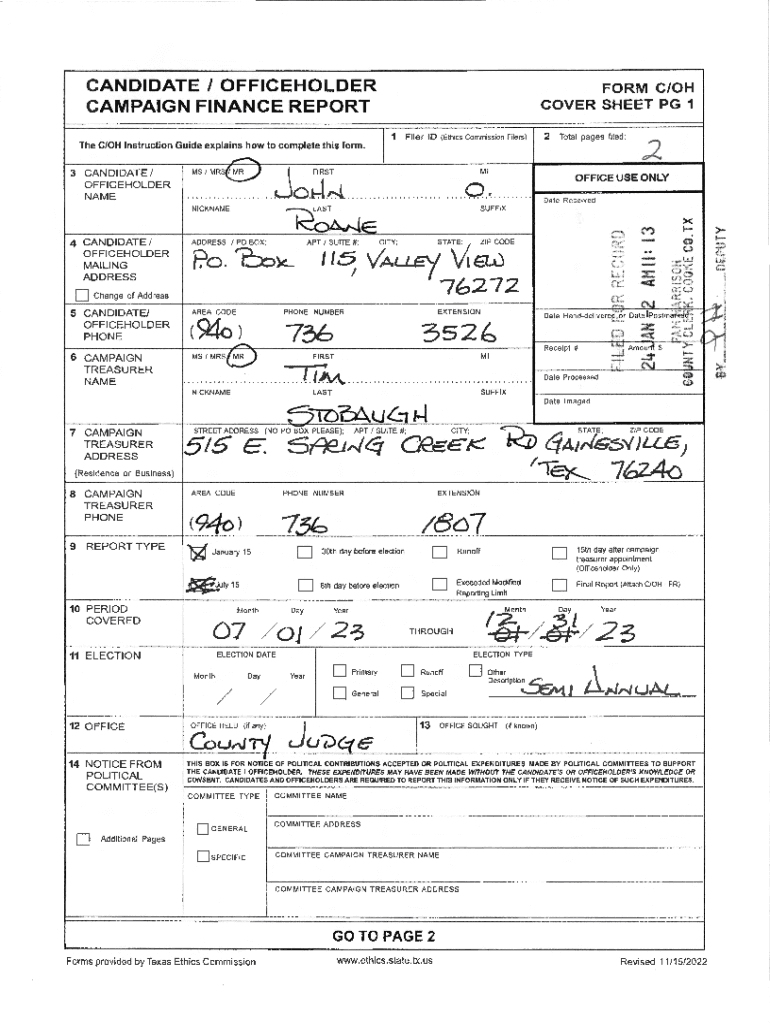 CANDIDATE / OFFICEHOLDER
CAMPAIGN FINANCE REPORT
FORM C/OH
COVER SHEET PG 1
The C/OH Instruction Guide explains how to complete this form.
1 Filer ID (Ethics Commission Filers)
2 Total pages filed:
2
3 CANDIDATE / OFFICEHOLDER NAME
MS / MRS / MR FIRST MI
JOHN O.
NICKNAME LAST SUFFIX
ROANE
OFFICE USE ONLY
Date Received
FILED FOR RECORD
24 JAN 2 AM 11: 13
PAM HARRISON
COUNTY CLERK, COOKE CO. TX
BY DEPUTY
4 CANDIDATE / OFFICEHOLDER MAILING ADDRESS
Change of Address
ADDRESS / PO BOX; APT / SUITE #; CITY; STATE; ZIP CODE
P.O. Box 115, VALLEY VIEW
76272
Date Hand-delivered or Date Postmarked
5 CANDIDATE/ OFFICEHOLDER PHONE
AREA CODE PHONE NUMBER EXTENSION
(940) 736 3526
Receipt # Amount $
6 CAMPAIGN TREASURER NAME
MS / MRS / MR FIRST MI
TIM
NICKNAME LAST SUFFIX
STOBAUGH
Date Processed
Date Imaged
7 CAMPAIGN TREASURER ADDRESS
(Residence or Business)
STREET ADDRESS (NO PO BOX PLEASE); APT / SUITE #; CITY; STATE; ZIP CODE
515 E. SPRING CREEK RD GAINESVILLE,
TEX 76240
8 CAMPAIGN TREASURER PHONE
AREA CODE PHONE NUMBER EXTENSION
(940) 736 1807
9 REPORT TYPE
January 15 30th day before election Runoff 15th day after campaign treasurer appointment (Officeholder Only)
July 15 8th day before election Exceeded Modified Reporting Limit Final Report (Attach C/OH - FR)
10 PERIOD COVERED
Month Day Year Month Day Year
07 / 01 / 23 THROUGH 12 / 31 / 23
11 ELECTION
ELECTION DATE ELECTION TYPE
Month Day Year
/ /
Primary Runoff Other Description
General Special
SEMI ANNUAL
12 OFFICE
OFFICE HELD (if any)
COUNTY JUDGE
13 OFFICE SOUGHT (if known)
14 NOTICE FROM POLITICAL COMMITTEE(S)
Additional Pages
THIS BOX IS FOR NOTICE OF POLITICAL CONTRIBUTIONS ACCEPTED OR POLITICAL EXPENDITURES MADE BY POLITICAL COMMITTEES TO SUPPORT
THE CANDIDATE / OFFICEHOLDER. THESE EXPENDITURES MAY HAVE BEEN MADE WITHOUT THE CANDIDATE'S OR OFFICEHOLDER'S KNOWLEDGE OR
CONSENT. CANDIDATES AND OFFICEHOLDERS ARE REQUIRED TO REPORT THIS INFORMATION ONLY IF THEY RECEIVE NOTICE OF SUCH EXPENDITURES.
COMMITTEE TYPE COMMITTEE NAME
GENERAL
COMMITTEE ADDRESS
SPECIFIC
COMMITTEE CAMPAIGN TREASURER NAME
COMMITTEE CAMPAIGN TREASURER ADDRESS
GO TO PAGE 2
Forms provided by Texas Ethics Commission www.ethics.state.tx.us Revised 11/15/2022